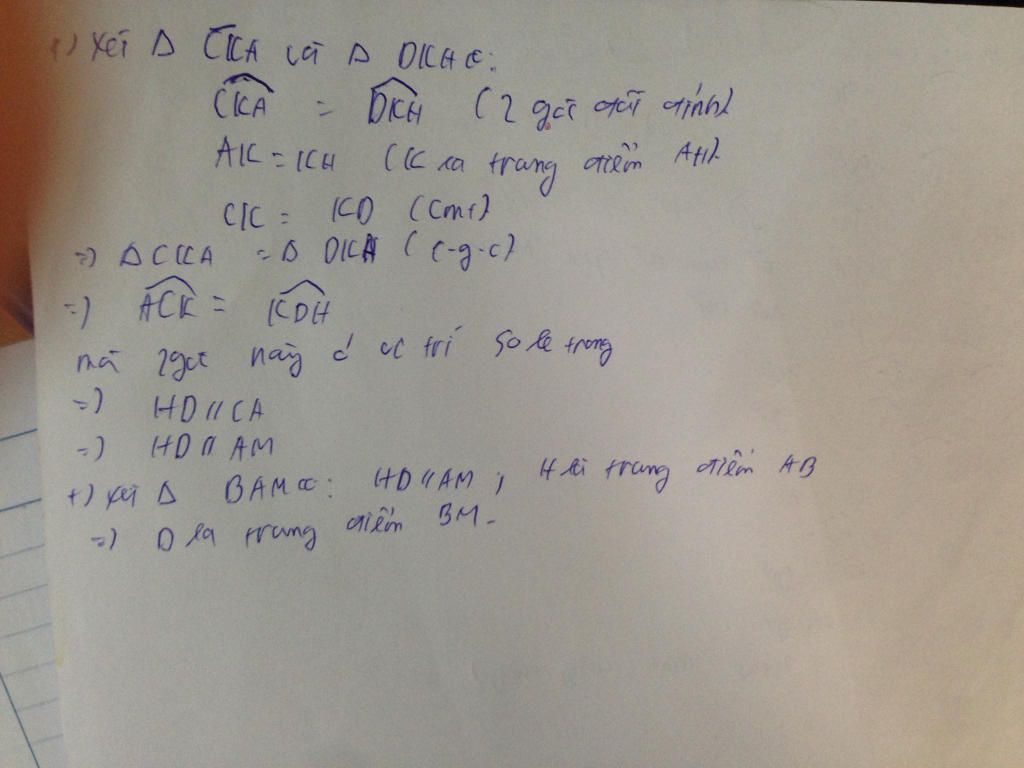 +) Xét Δ CKA và Δ DKH có:
CKA = DKH (2 góc đối đỉnh)
AK = KH (K là trung điểm AH)
CK = KD (cmt)
=) Δ CKA = Δ DKH (c-g-c)
=) ACK = KDH
mà 2 góc này ở vị trí so le trong
=) HD // CA
=) HD // AM
+) Xét Δ BAM có: HD // AM ; H là trung điểm AB
=) D là trung điểm BM.